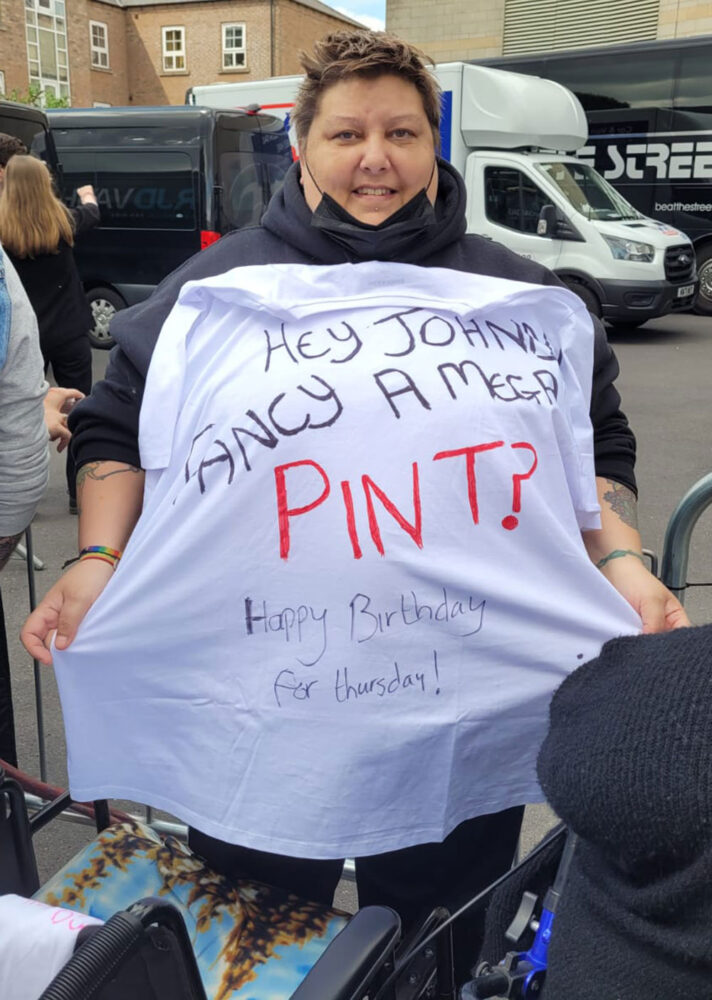 HEY JOHNNY
FANCY A MEGA
PINT?
Happy Birthday
for thursday!
RJDVAN
E STREE
beatthestree